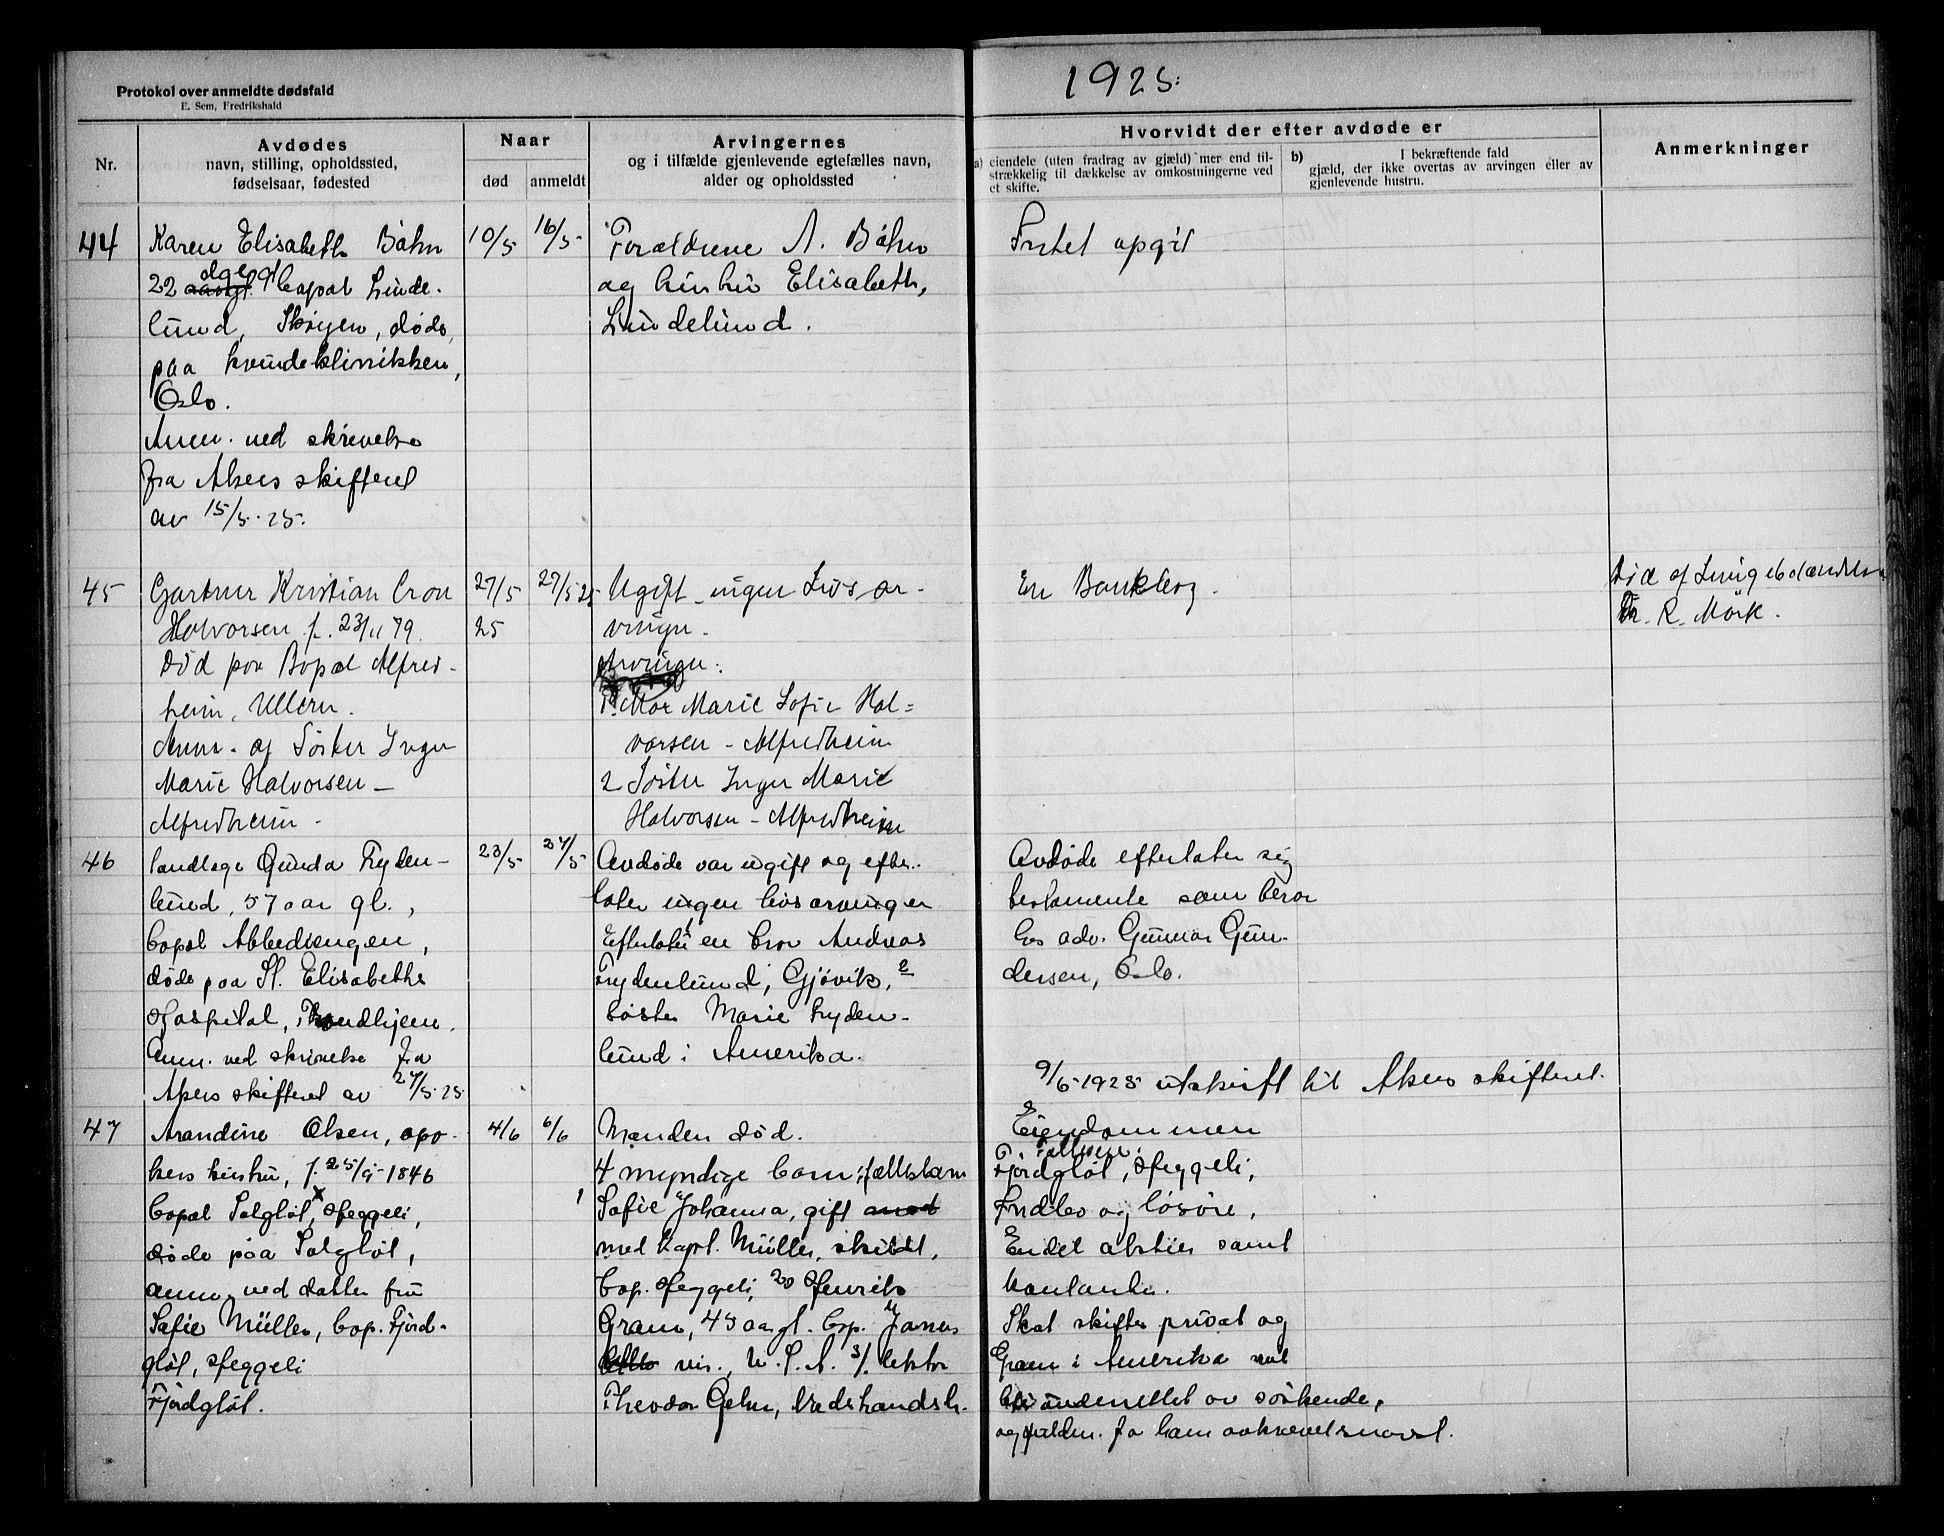 Protokol over anmeldte dødsfald
E. Sem, Fredrikshald
1925.
Nr.
Avdødes
navn, stilling, opholdssted,
fødselsaar, fødested
Naar
død
anmeldt
Arvingernes
og i tilfælde gjenlevende egtefælles navn,
alder og opholdssted
Hvorvidt der efter avdøde er
a) eiendele (uten fradrag av gjæld) mer end til-
strækkelig til dækkelse av omkostningerne ved
et skifte.
b) I bekræftende fald
gjæld, der ikke overtas av arvingen eller av
gjenlevende hustru.
Anmerkninger
44
Karen Elisabeth Båhn
22 dge gl. bopæl Linde-
lund, Skøyen, døde
paa kvindeklinikken,
Oslo.
Anm. ved skrivelse
fra Akers skifteret
av 15/5.25.
10/5
16/5
Forældrene A. Båhn
og hustru Elisabeth,
Lindelund.
Intet opgit
45
Gartner Kristian Cron
Halvorsen f. 23/11 79.
Død paa Bopæl Alfred-
heim, Ullern.
Anm. af Søster Inger
Marie Halvorsen -
Alfredheim -
27/5
25
29/5 25
Ugift - ingen Livsar-
vinger.
Arvinger:
1. Mor Marie Sofie Hal-
vorsen - Alfredheim
2 Søster Inger Marie
Halvorsen - Alfredheim
En Bankbog.
Død af
Dr. R. Mörk.
46
Gunda Tryden-
lund, 57 aar gl.,
bopæl Abbediengen,
døde paa St. Elisabeths
Hospital, Trondhjem.
Anm. ved skrivelse fra
Akers skifteret av 27/5 25
23/5
27/5
Avdøde var ugift og efter-
later ingen livsarvinger
Efterlater en bror Andreas
Trydenlund, Gjøvik, 2
søster Marie Tryden-
lund i Amerika.
Avdøde efterlater sig
testamente som beror
hos adv. Gunnar Gun-
dersen, Oslo.
9/6 1925 utskrift til Akers skifteret.
47
Arandine Olsen,
kers hustru, f. 25/9 1846
bopæl Solgløt, Heggeli,
døde paa Solgløt,
anm. ved datter fru
Sofie Müller, bop. Fjord-
gløt, Heggeli
Fjordgløt.
4/6
6/6
Manden død.
4 myndige barn: fællesbarn
1 Sofie Johanna, gift
med kapt. Müller, skildt,
bop. Heggeli, 2) Henrik
Gram, 45 aar gl. bop. Janes
vis., U.S.A. 3/. lektor
Theodor Gehn,
Eiendommen
Fjordgløt, Heggeli,
Indbo og løsøre,
Endel aktier samt
kontanter.
Skal skiftes privat og
Gram i Amerika vil
bli underrettet av søskende,
og fuldm. fra ham